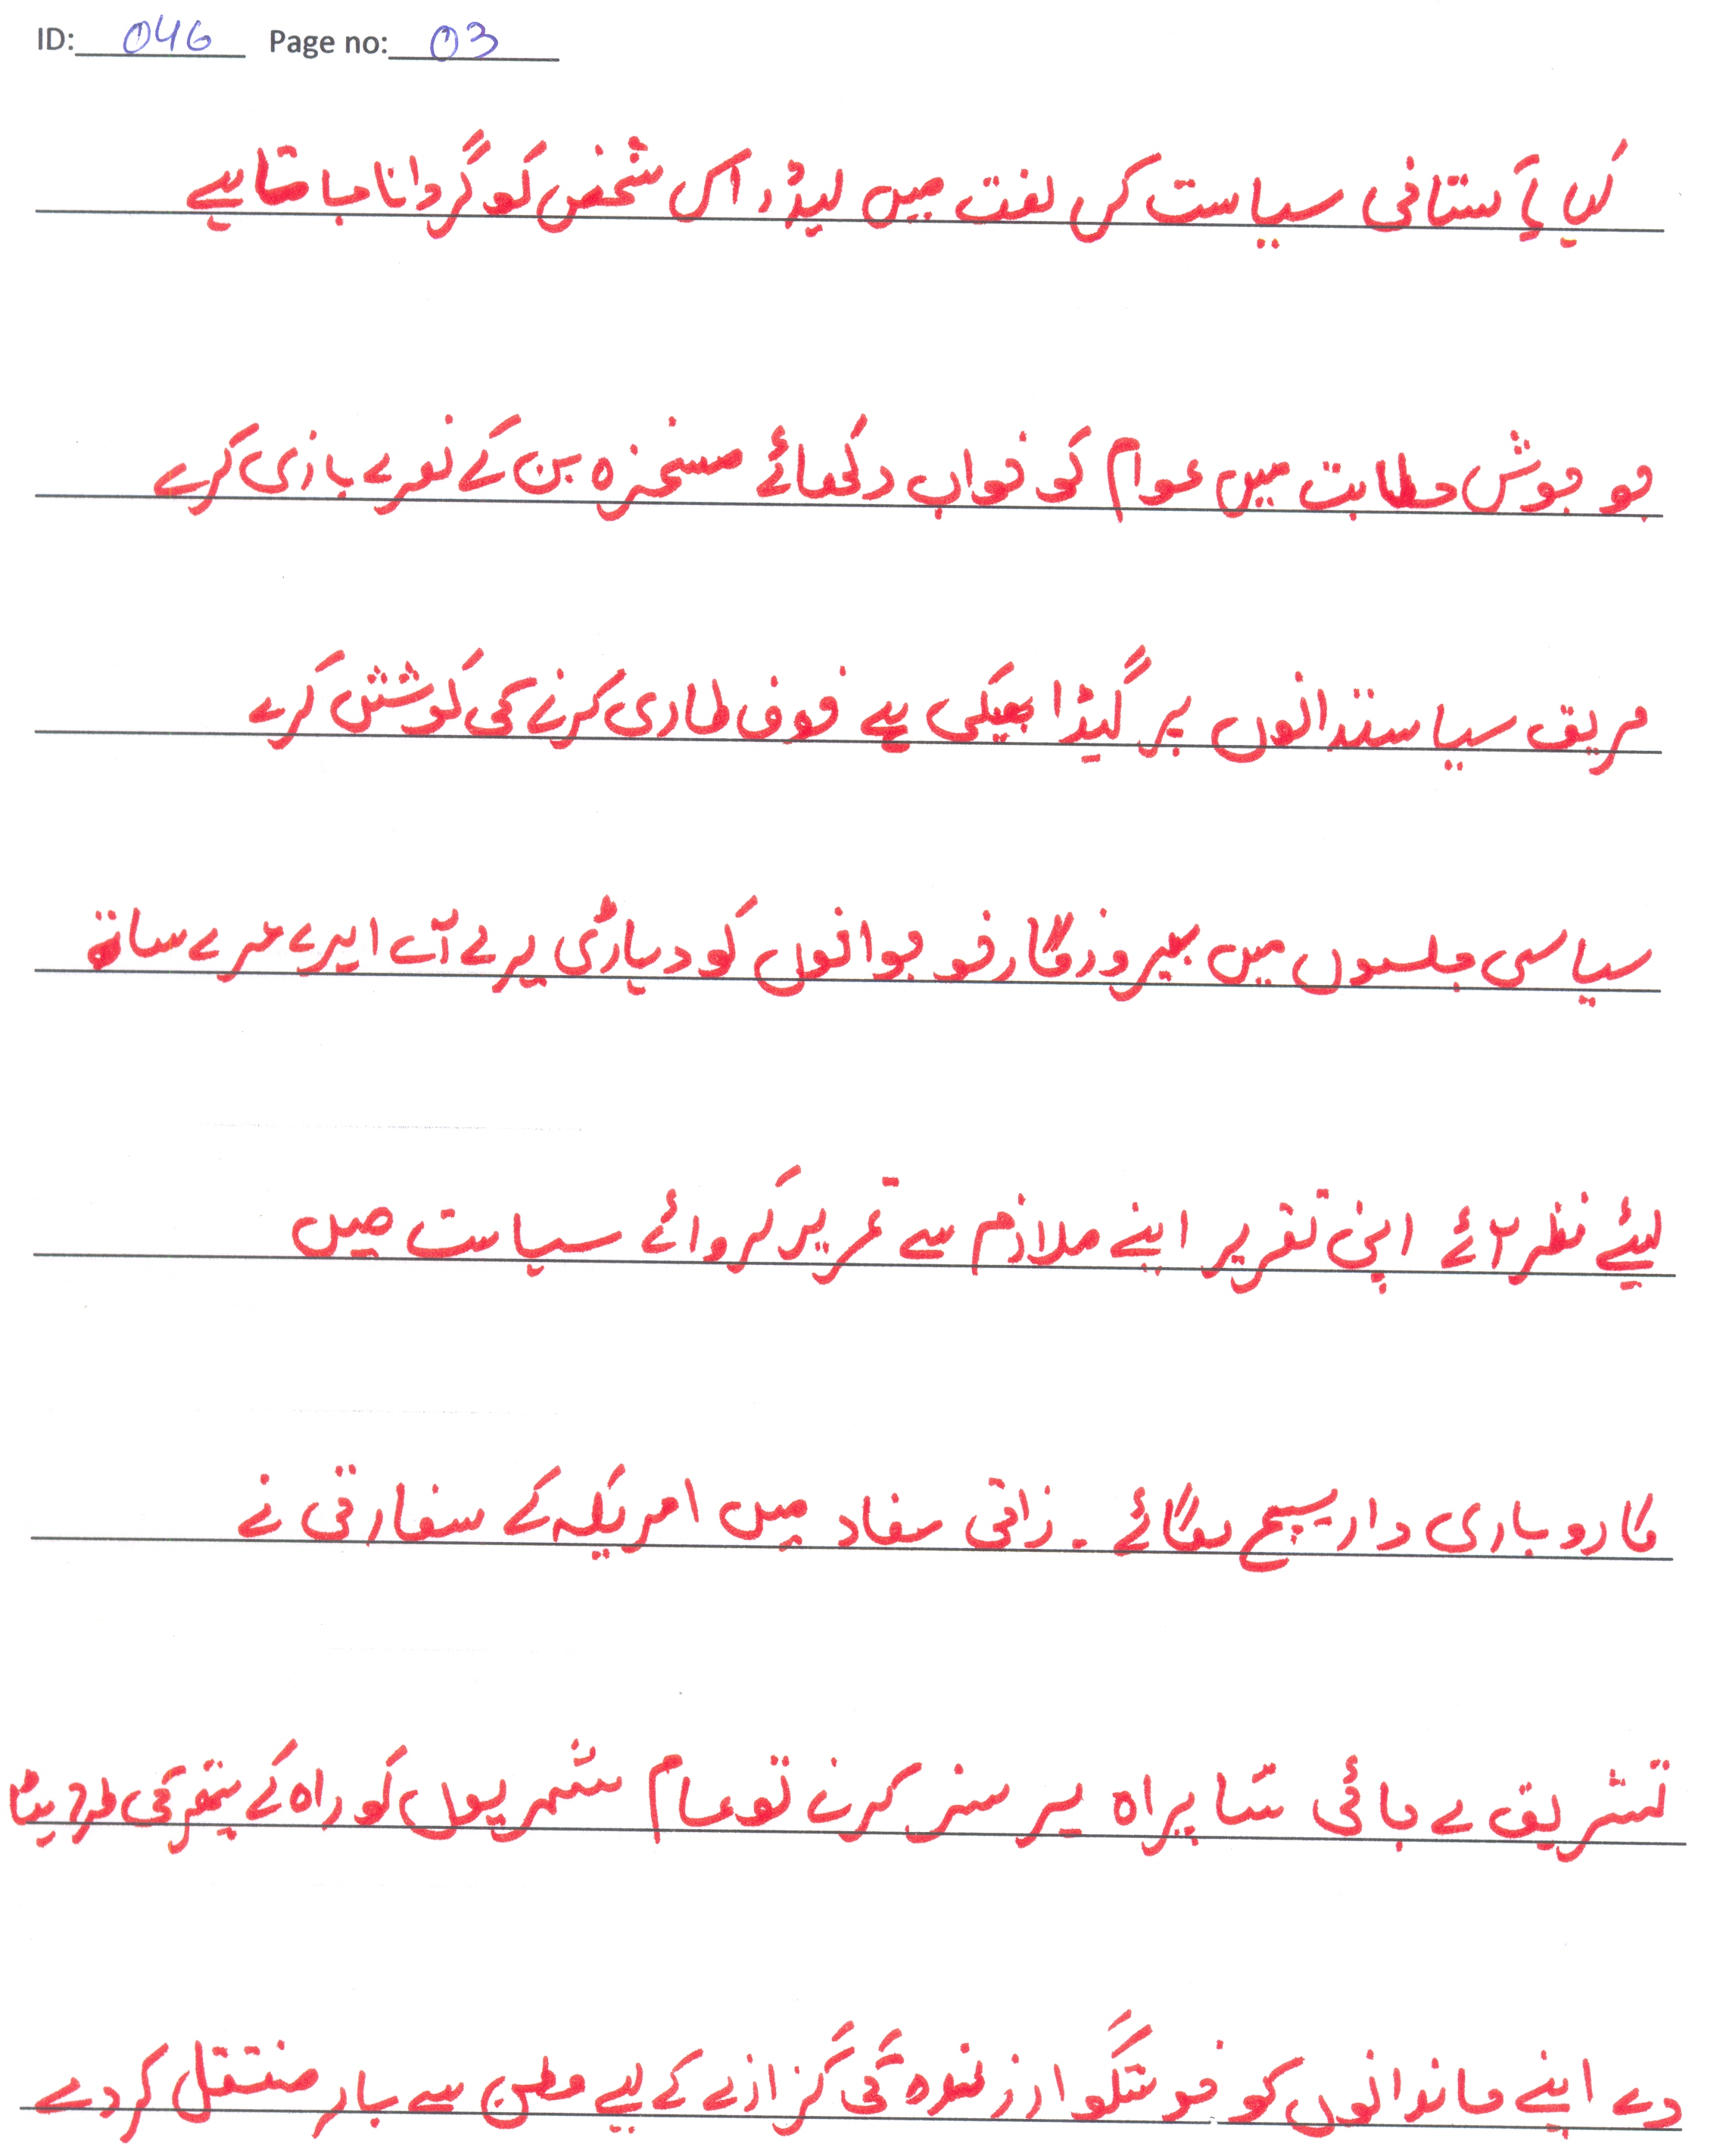 ID: 046 Page no: 03
کیا پاکستانی سیاست کی لغت میں لیڈر اس شخص کو گردانا جاتا ہے
جو جوش خطابت میں عوام کو خواب دکھائے مسخرہ بن کے نعرے بازی کرے
حریف سیاستدانوں پر گیڈر بھبکی سے خوف طاری کرنے کی کوشش کرے
سیاسی جلسوں میں بیروزگار نوجوانوں کو دیہاڑی پر لے آئے ایرے غیرے ساتھ
لیئے نظر آئے اپنی تقریر اپنے ملازم سے تحریر کروائے سیاست میں
کاروباری داؤ پیچ لگائے ۔ ذاتی مفاد میں امریکہ کے سفارتی نے
تشریف لے جائی شاہراہ پر سفر کرے تو عام شہریوں کو راہ کے پتھر کی طرح ہٹا
دے اپنے خاندانوں کو خوشگوار زندگی گزارنے کے لیے وطن سے باہر منتقل کر دے